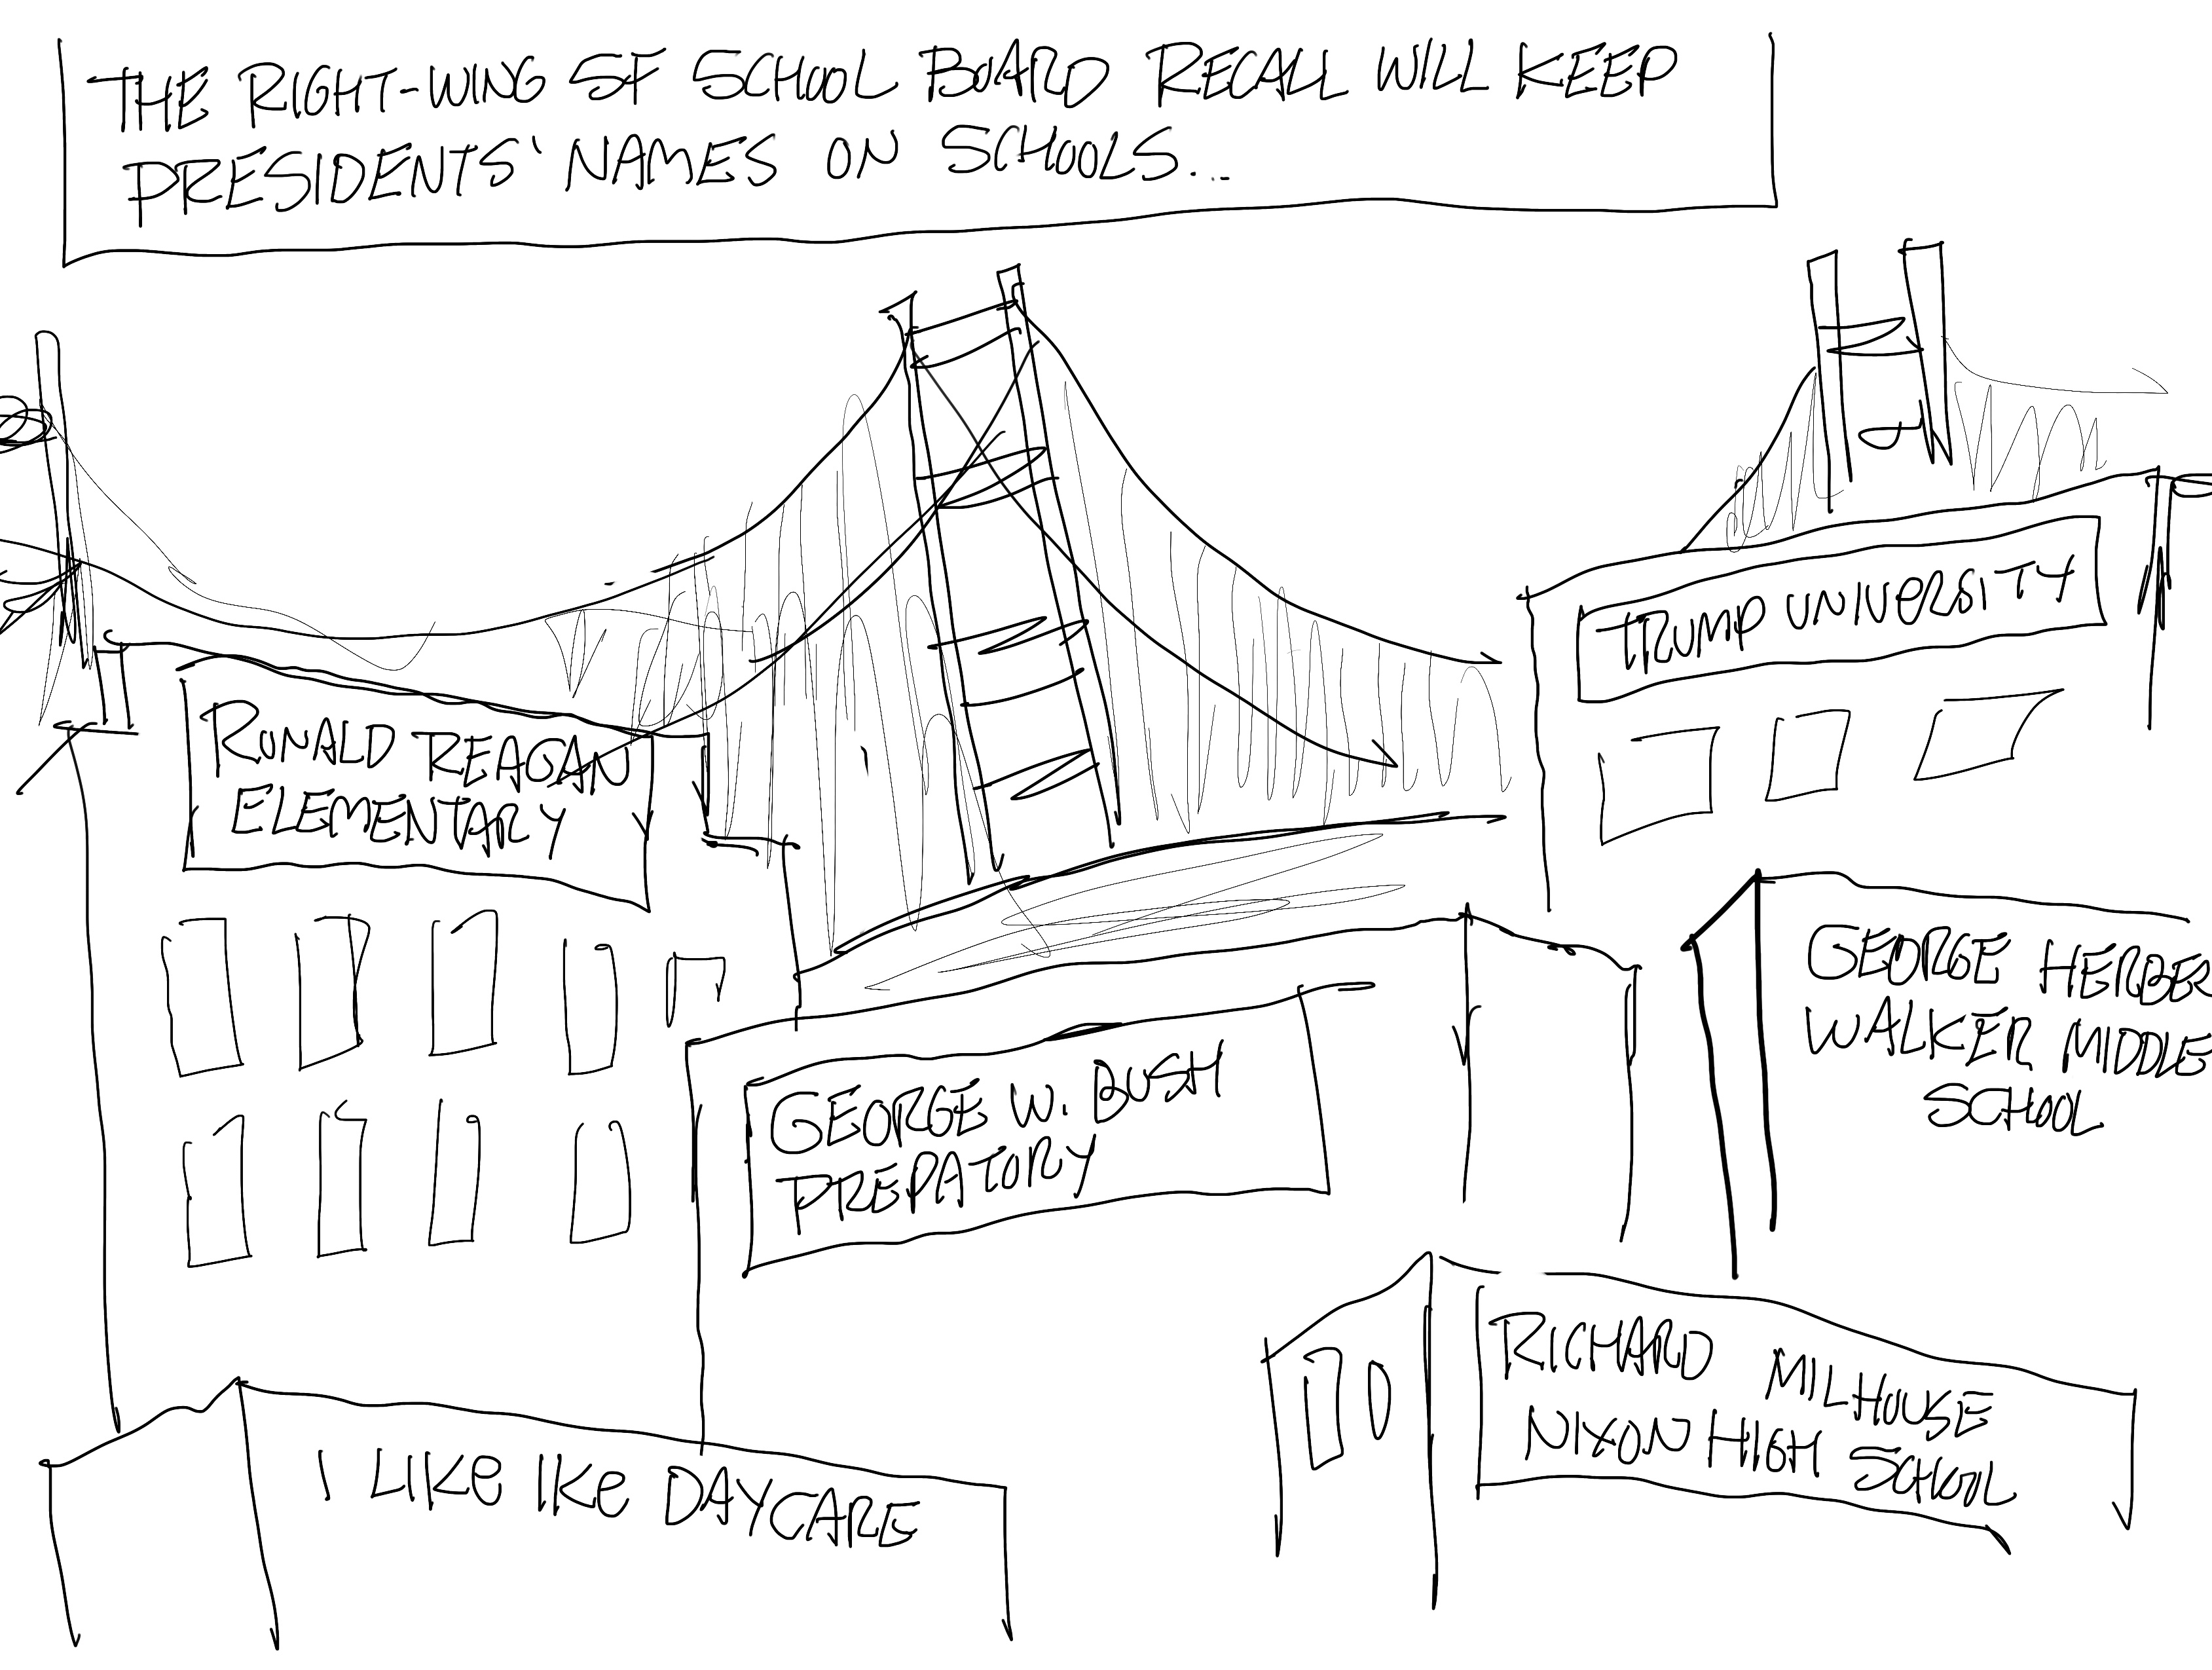 THE RIGHT-WING SF SCHOOL BOARD RECALL WILL KEEP
PRESIDENTS' NAMES ON SCHOOLS...
TRUMP UNIVERSITY
RONALD REAGAN
ELEMENTARY
GEORGE HERBER
WALKER MIDDLE
SCHOOL
GEORGE W. BUSH
PREPATORY
RICHARD MILHOUSE
NIXON HIGH SCHOOL
I LIKE IKE DAYCARE